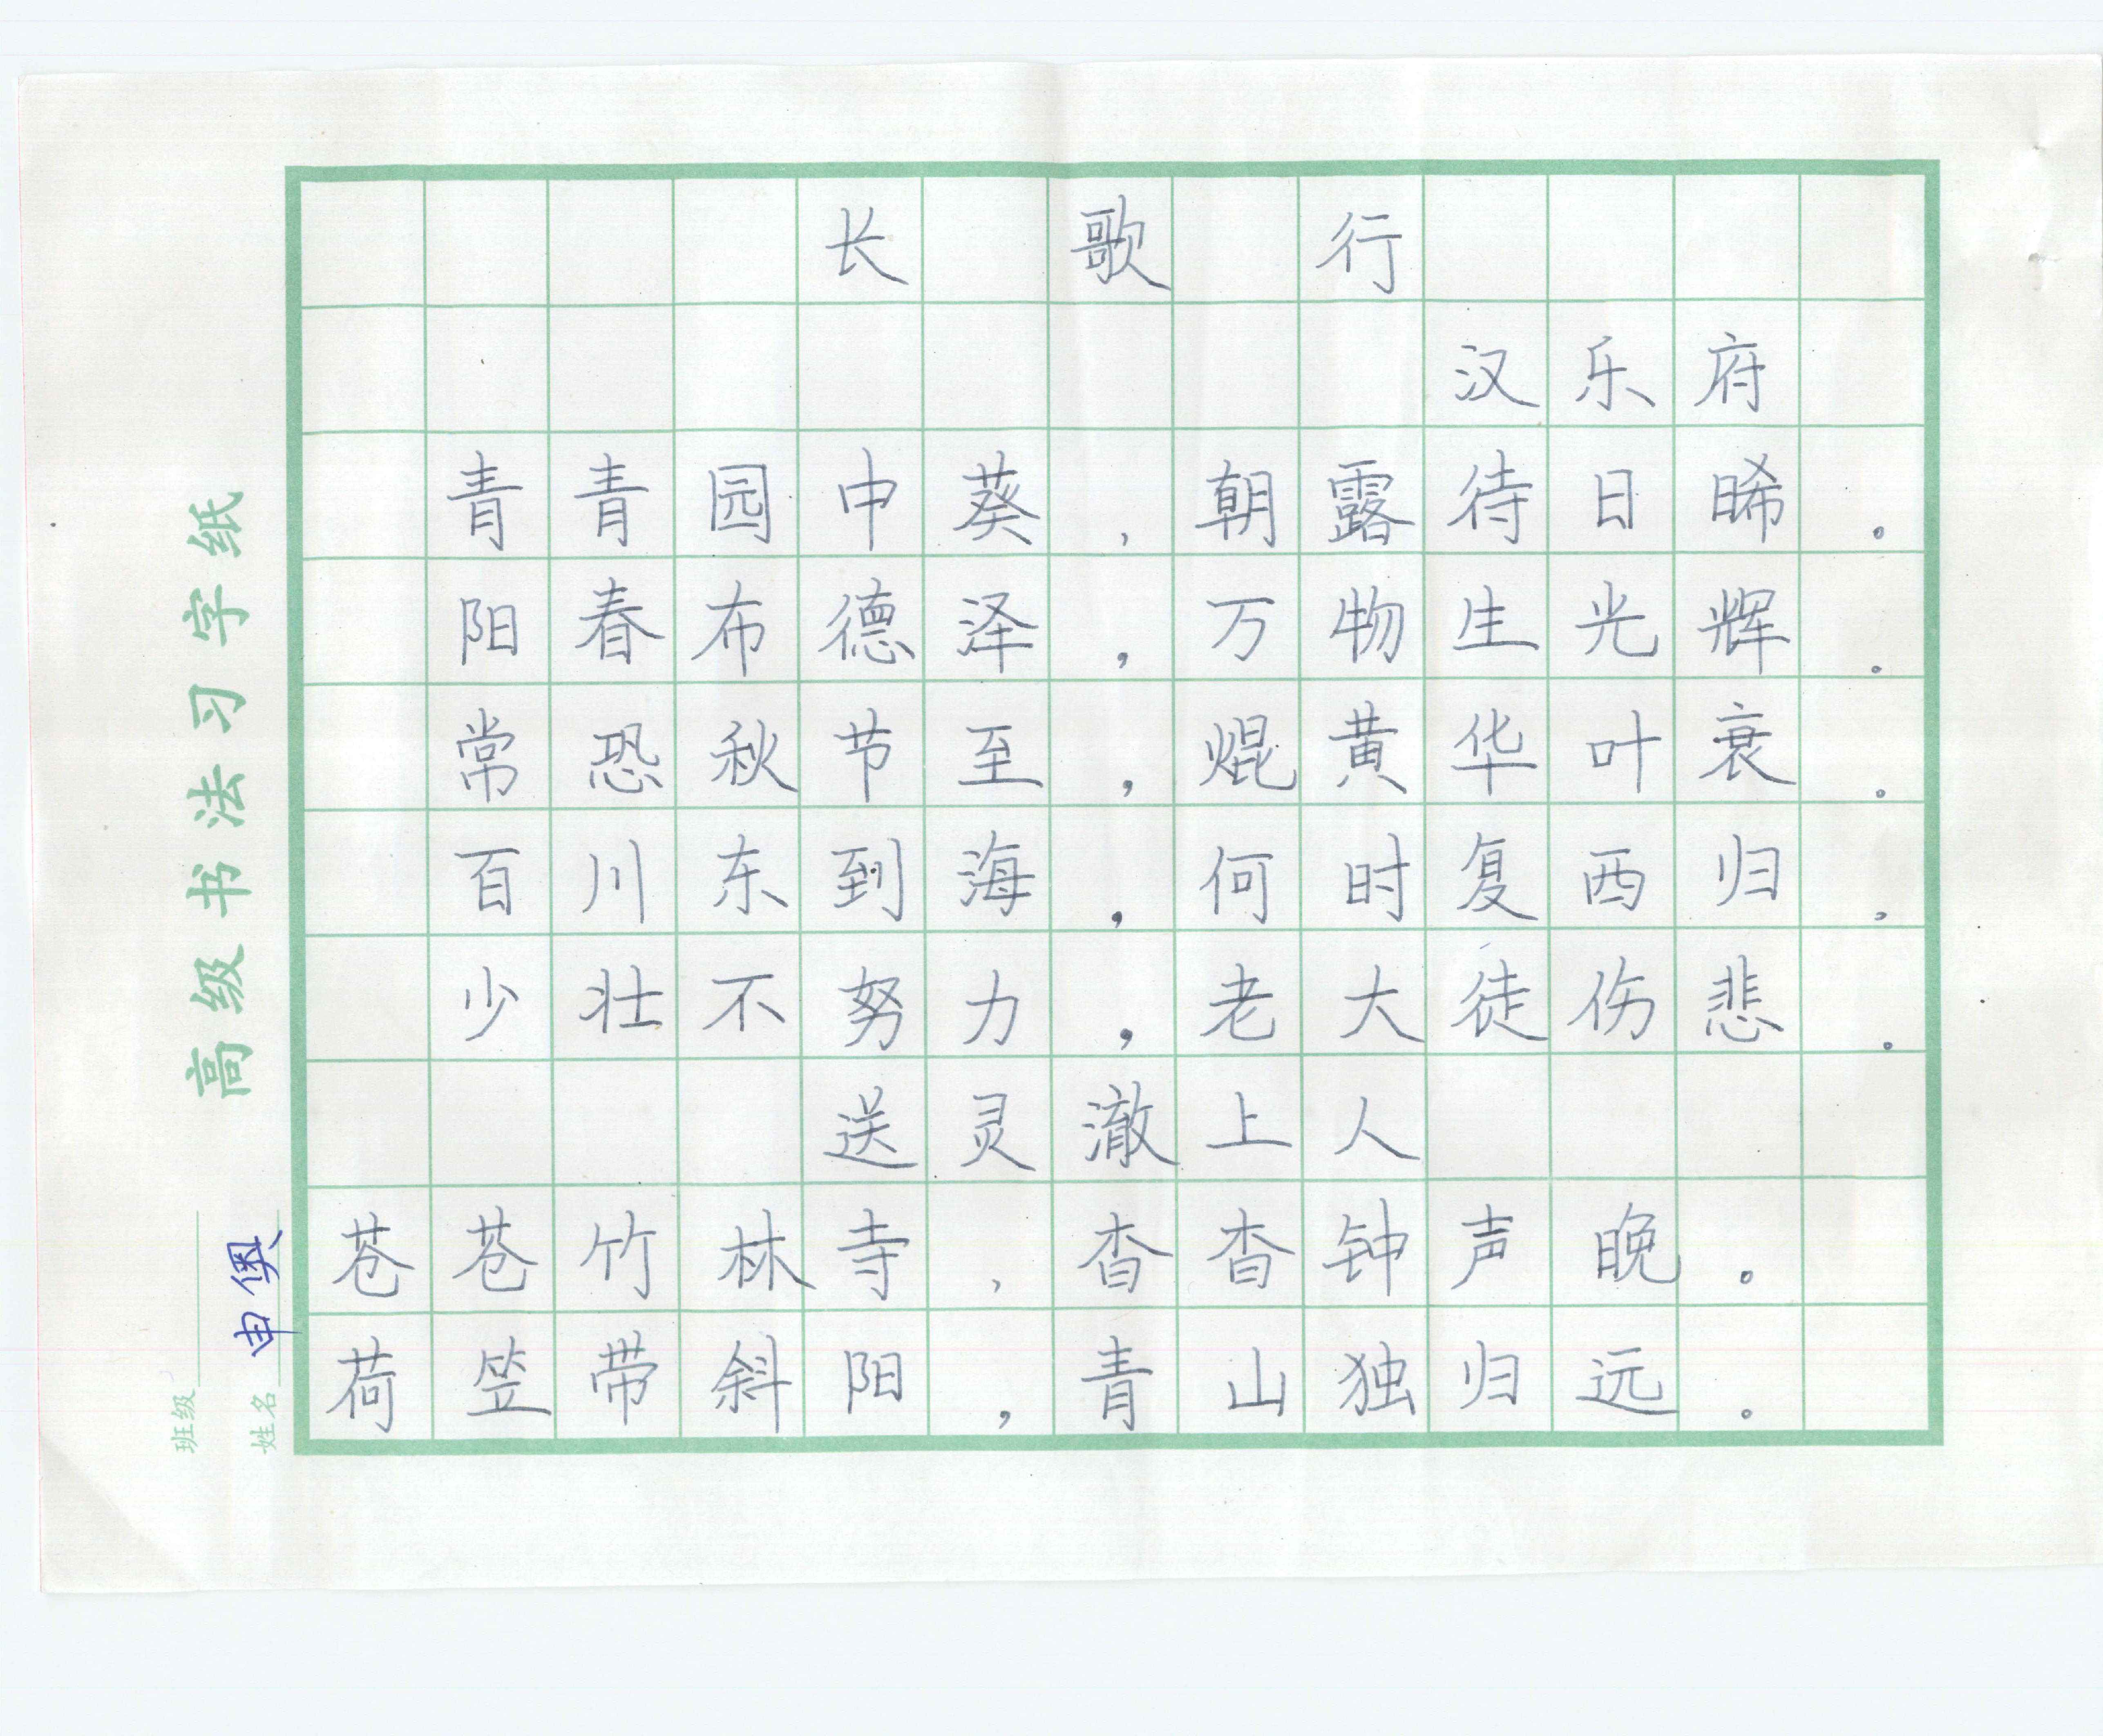 长歌行
汉乐府
青青园中葵，朝露待日晞。
阳春布德泽，万物生光辉。
常恐秋节至，焜黄华叶衰。
百川东到海，何时复西归。
少壮不努力，老大徒伤悲。
送灵澈上人
苍苍竹林寺，杳杳钟声晚。
荷笠带斜阳，青山独归远。
高级书法习字纸
班级
姓名 申奥